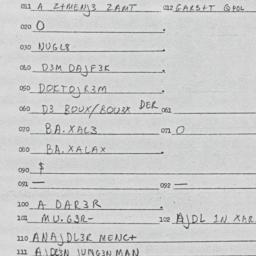 011 A Z+MENJ3 ZAMT 012 GARS+T QPOL
020 O
030 NUGL8
040 D3M DAJF3K
050 DOKTOJR3M
060 D3 BOUX/BOU3X DER 061
070 BA.XAL3 071 O
080 BA.XALAX
090 $
091 — 092 —
100 A DAR3R
101 MU.G3R- 102 AJDL IN XAR
110 ANAJDL3R MENC+
111 AJDL3N JUNG3NMAN